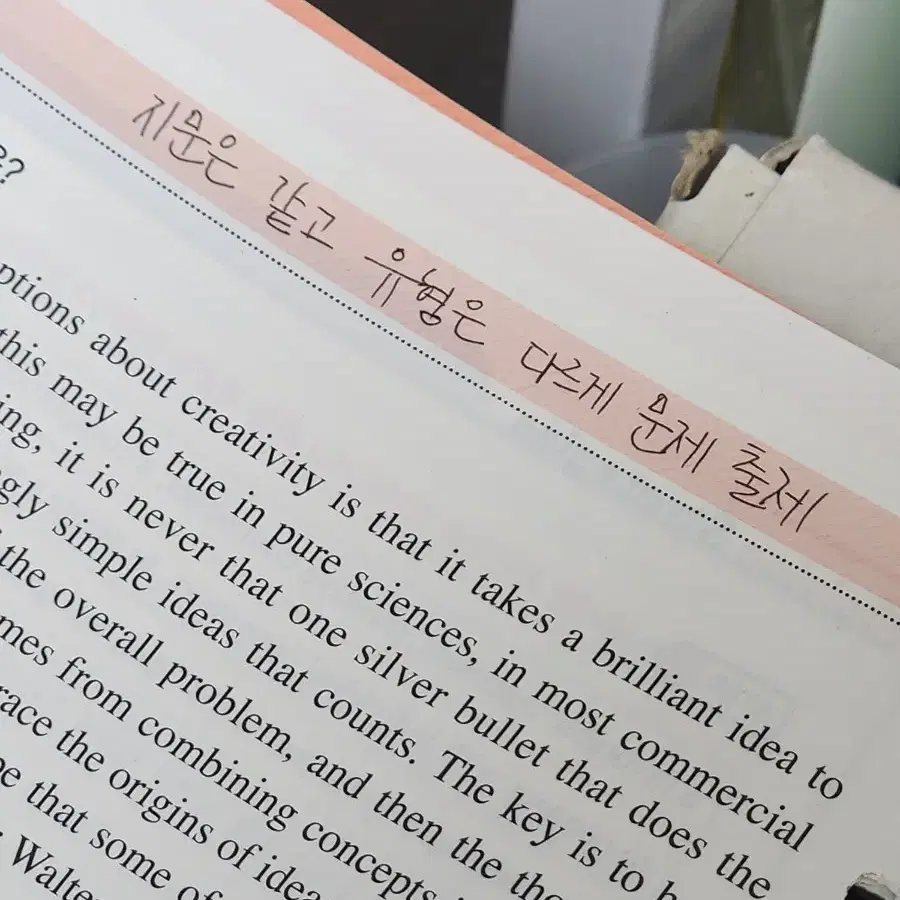 지문은 같고 유형은 다르게 문제 출제
about creativity is that it takes a brilliant idea to
this may be true in pure sciences, in most commercial
it is never that one silver bullet that does the
simple ideas that counts. The key is to
the overall problem, and then the
from combining concepts
the origins of
that some of
Walter